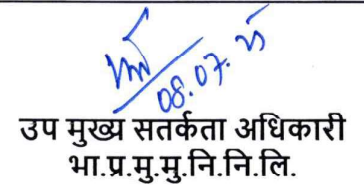 08.07.25
उप मुख्य सतर्कता अधिकारी
भा.प्र.मु.मु.नि.नि.लि.